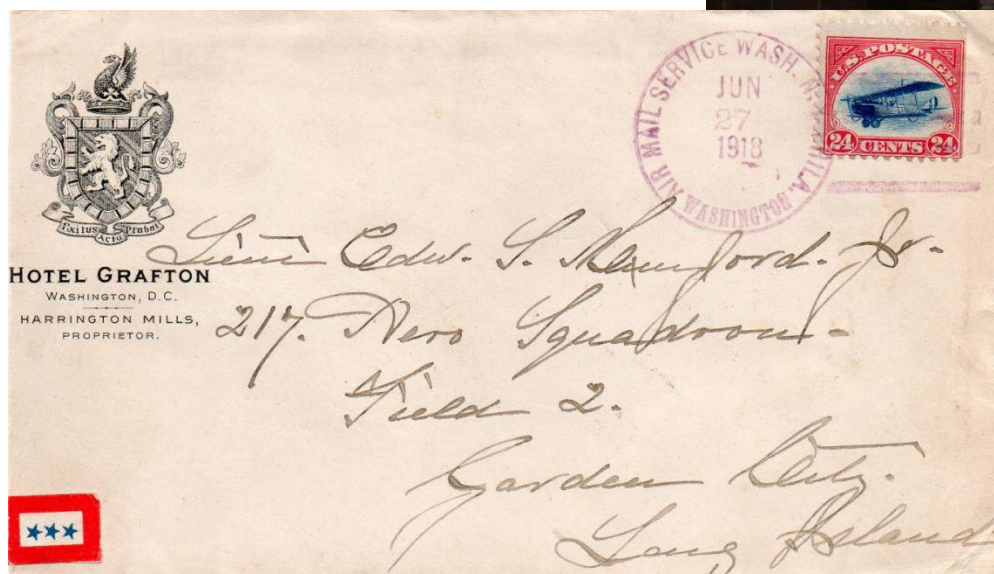 Exitus Acta Probat
HOTEL GRAFTON
WASHINGTON, D.C.
HARRINGTON MILLS,
PROPRIETOR.
AIR MAIL SERVICE WASH. N. PHILA.
JUN
27
1918
WASHINGTON
U.S. POSTAGE
24 CENTS 24
Lieut Edw. S. Jr.
217. Aero Squadron
Field 2.
Garden City.
Long Island